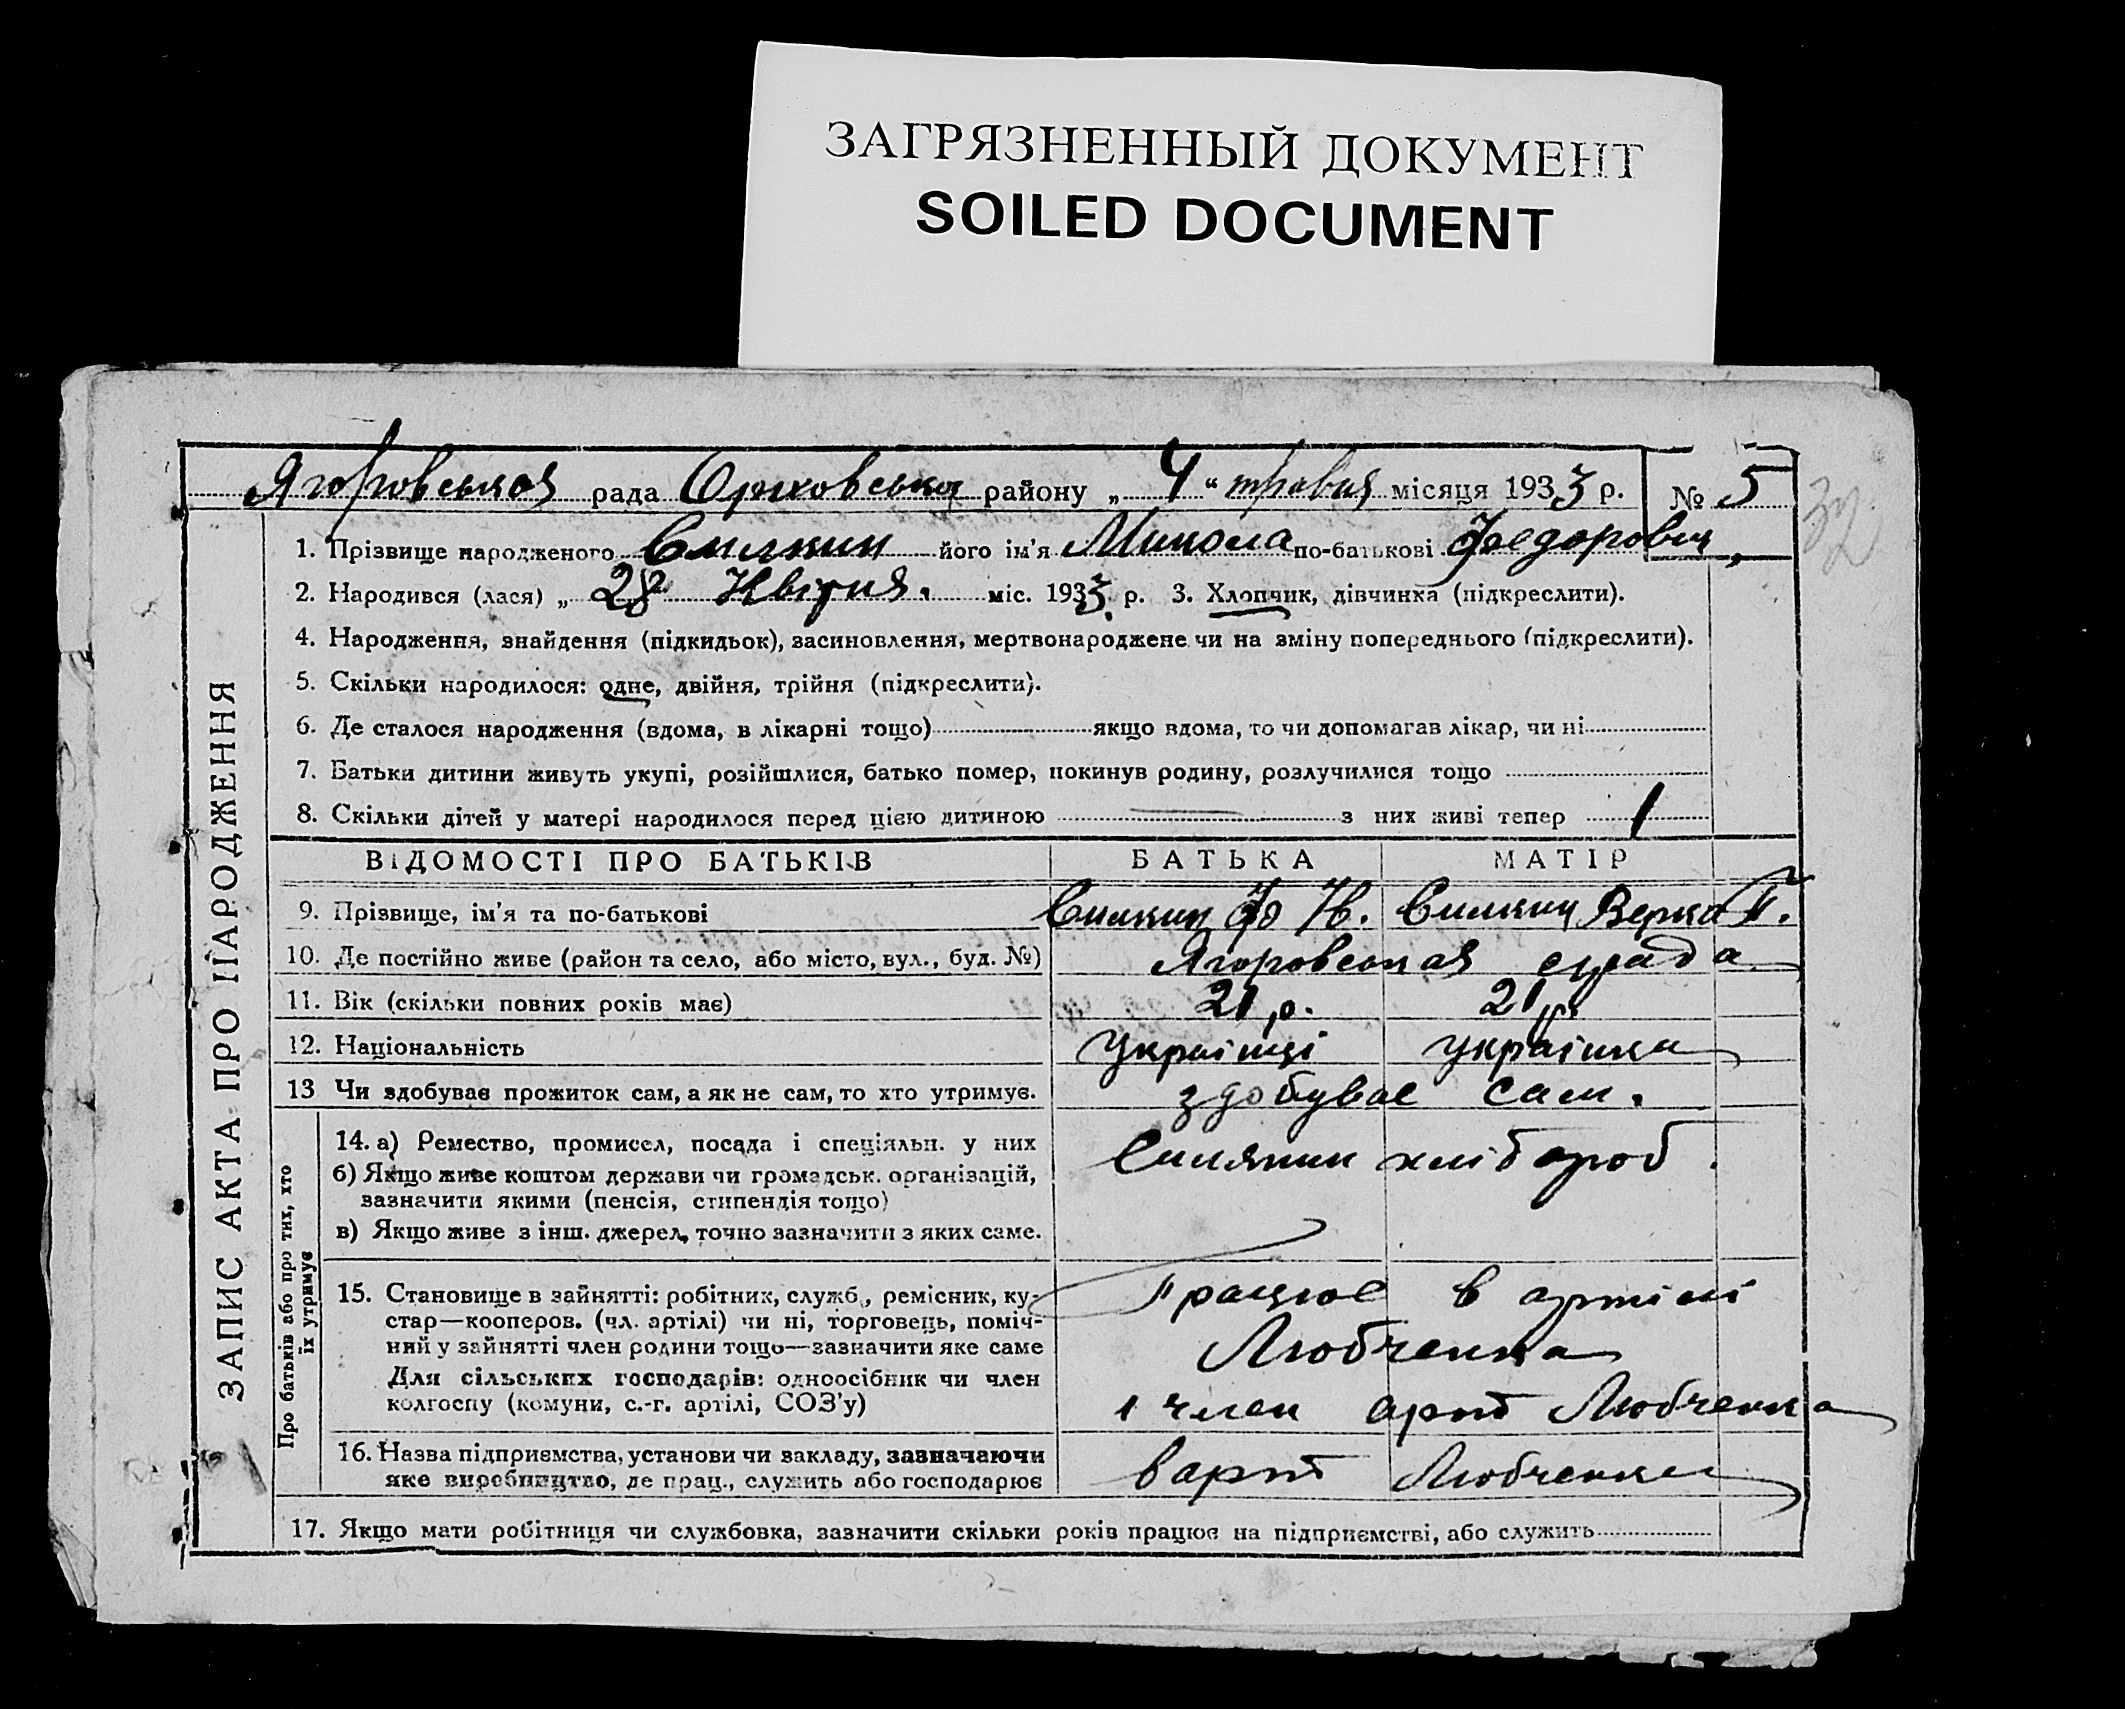 ЗАГРЯЗНЕННЫЙ ДОКУМЕНТ
SOILED DOCUMENT
Ягоровськая рада района „ 4 “ травня місяця 1933 р. № 5
32
ЗАПИС АКТА ПРО НАРОДЖЕННЯ
1. Прізвище народженого його ім'я Микола по-батькові Федорович,
2. Народився (лася) „ 28 Квітня. міс. 1933 р. 3. Хлопчик, дівчинка (підкреслити).
4. Народження, знайдення (підкидьок), засиновлення, мертвонароджене чи на зміну попереднього (підкреслити).
5. Скільки народилося: одне, двійня, трійня (підкреслити).
6. Де сталося народження (вдома, в лікарні тощо) якщо вдома, то чи допомагав лікар, чи ні
7. Батьки дитини живуть укупі, розійшлися, батько помер, покинув родину, розлучилися тощо
8. Скільки дітей у матері народилося перед цією дитиною — з них живі тепер 1
ВІДОМОСТІ ПРО БАТЬКІВ БАТЬКА МАТІР
9. Прізвище, ім'я та по-батькові
10. Де постійно живе (район та село, або місто, вул., буд. №) Ягоровськая срада
11. Вік (скільки повних років має) 21 р. 21 р.
12. Національність Українці українка
13 Чи здобуває прожиток сам, а як не сам, то хто утримує. здобувае сам.
Про батьків або про тих, хто їх утримує
14. а) Ремество, промисел, посада і спеціяльн. у них
б) Якщо живе коштом держави чи громадськ. організацій,
зазначити якими (пенсія, стипендія тощо)
в) Якщо живе з інш. джерел, точно зазначити з яких саме.
Силянин хлібороб.
15. Становище в зайнятті: робітник, служб., ремісник, ку-
стар—кооперов. (чл. артілі) чи ні, торговець, поміч-
ний у зайнятті член родини тощо—зазначити яке саме
Для сільських господарів: одноосібник чи член
колгоспу (комуни, с.-г. артілі, СОЗ'у)
Працюе в артілі
Любченка
член арт Любченка
16. Назва підприємства, установи чи закладу, зазначаючи
яке виробництво, де прац., служить або господарює
в арт Любченка
17. Якщо мати робітниця чи службовка, зазначити скільки років працює на підприємстві, або служить